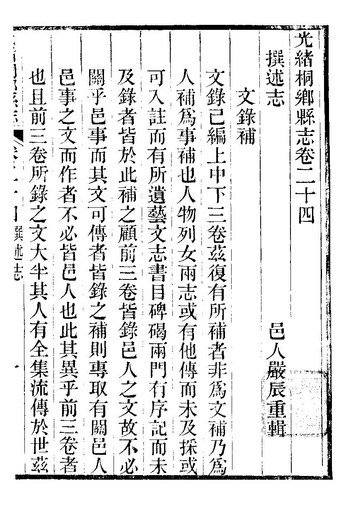 光緒桐鄉縣志卷二十四
撰述志
邑人嚴辰重輯
文錄補
文錄已編上中下三卷茲復有所補者非爲文補乃爲
人補爲事補也人物列女兩志或有他傳而未及採或
可入註而有所遺藝文志書目碑碣兩門有序記而未
及錄者皆於此補之顧前三卷皆錄邑人之文故不必
關乎邑事而其文可傳者皆錄之補則專取有關邑人
邑事之文而作者不必皆邑人也此其異乎前三卷者
也且前三卷所錄之文大半其人有全集流傳於世茲
撰述志
一